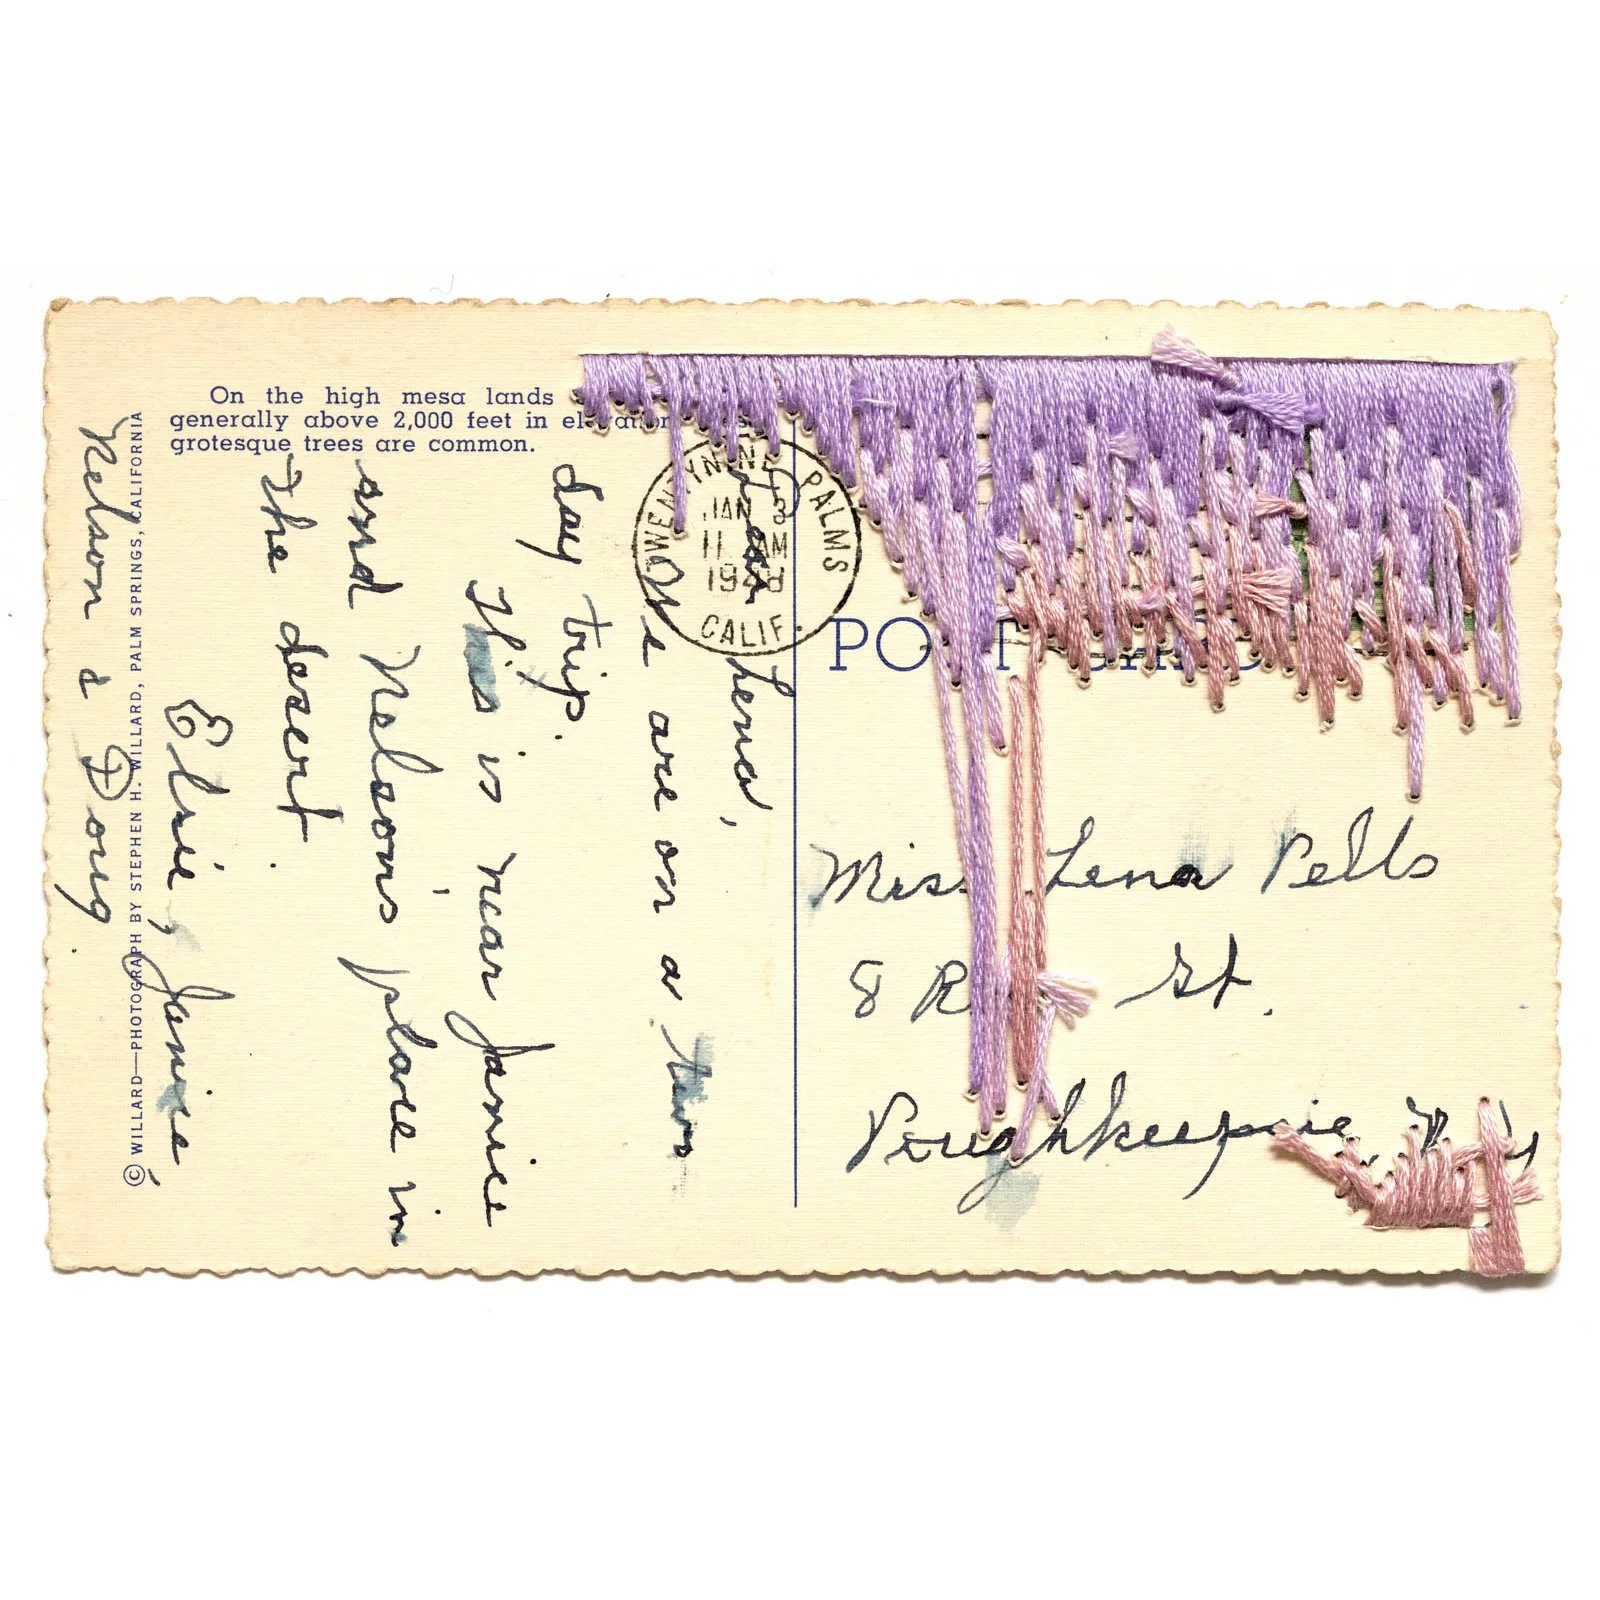 On the high mesa lands
generally above 2,000 feet in elevation
grotesque trees are common.
© WILLARD—PHOTOGRAPH BY STEPHEN H. WILLARD, PALM SPRINGS, CALIFORNIA
PALMS
JAN 3
11 AM
1948
CALIF.
PO T CARD
Dear Lena,
We are on a two
day trip.
This is near Janice
and Nelson's place in
the desert.
Elsie, Janice
Nelson & Doug.
Miss Lena Pells
8 R St.
Poughkeepsie, N.Y